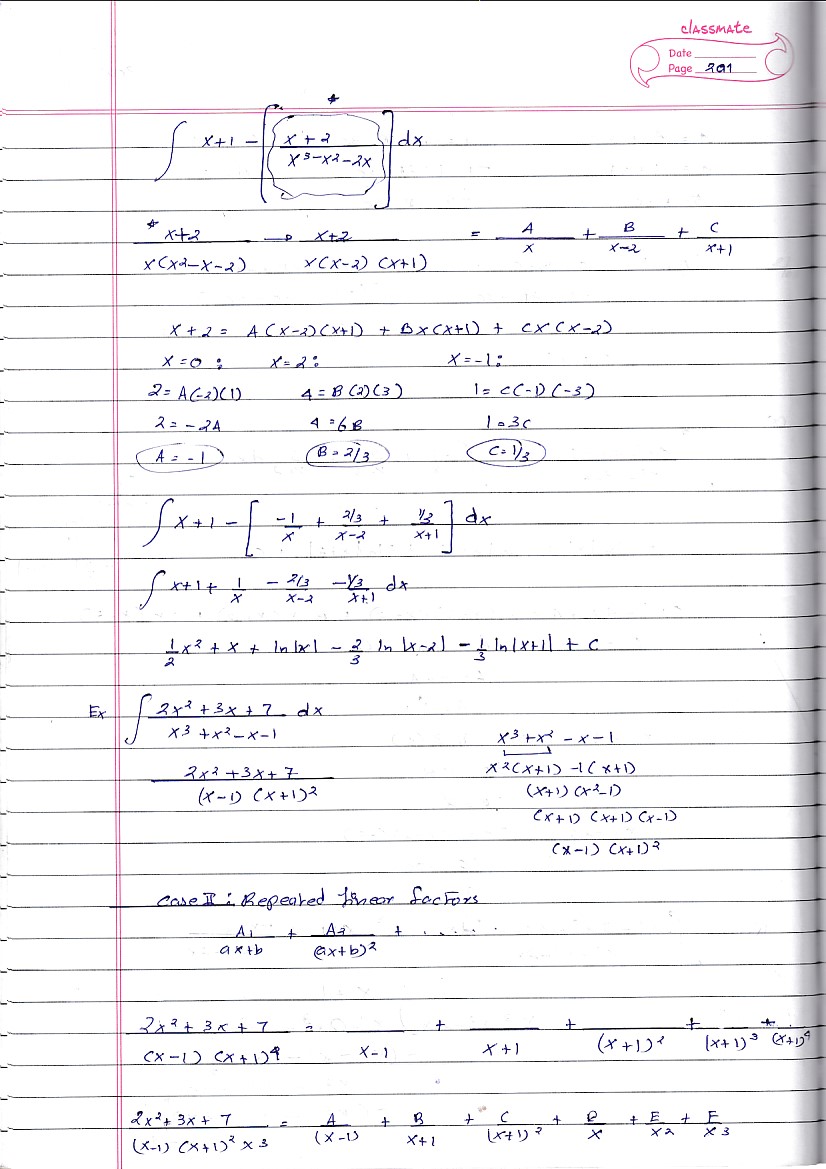 classmate
Date
Page 201
*
∫ x+1 − [ x+2 / x³−x²−2x ] dx
* x+2 / x(x²−x−2) → x+2 / x(x−2)(x+1) = A/x + B/x−2 + C/x+1
x+2 = A(x−2)(x+1) + Bx(x+1) + Cx(x−2)
x=0: x=2: x=−1:
2=A(−2)(1) 4=B(2)(3) 1=C(−1)(−3)
2=−2A 4=6B 1=3C
A=−1 B=2/3 C=1/3
∫ x+1 − [ −1/x + 2/3 / x−2 + 1/3 / x+1 ] dx
∫ x+1 + 1/x − 2/3 / x−2 − 1/3 / x+1 dx
1/2 x² + x + ln|x| − 2/3 ln|x−2| − 1/3 ln|x+1| + C
Ex ∫ 2x²+3x+7 / x³+x²−x−1 dx
x³+x²−x−1
2x²+3x+7 / (x−1)(x+1)² x²(x+1) −1(x+1)
(x+1)(x²−1)
(x+1)(x+1)(x−1)
(x−1)(x+1)²
Case II: Repeated linear factors
A₁ / ax+b + A₂ / (ax+b)² + .....
2x²+3x+7 / (x−1)(x+1)⁴ = __ / x−1 + __ / x+1 + __ / (x+1)² + __ / (x+1)³ + __ / (x+1)⁴
2x²+3x+7 / (x−1)(x+1)² x³ = A/(x−1) + B/x+1 + C/(x+1)² + D/x + E/x² + F/x³